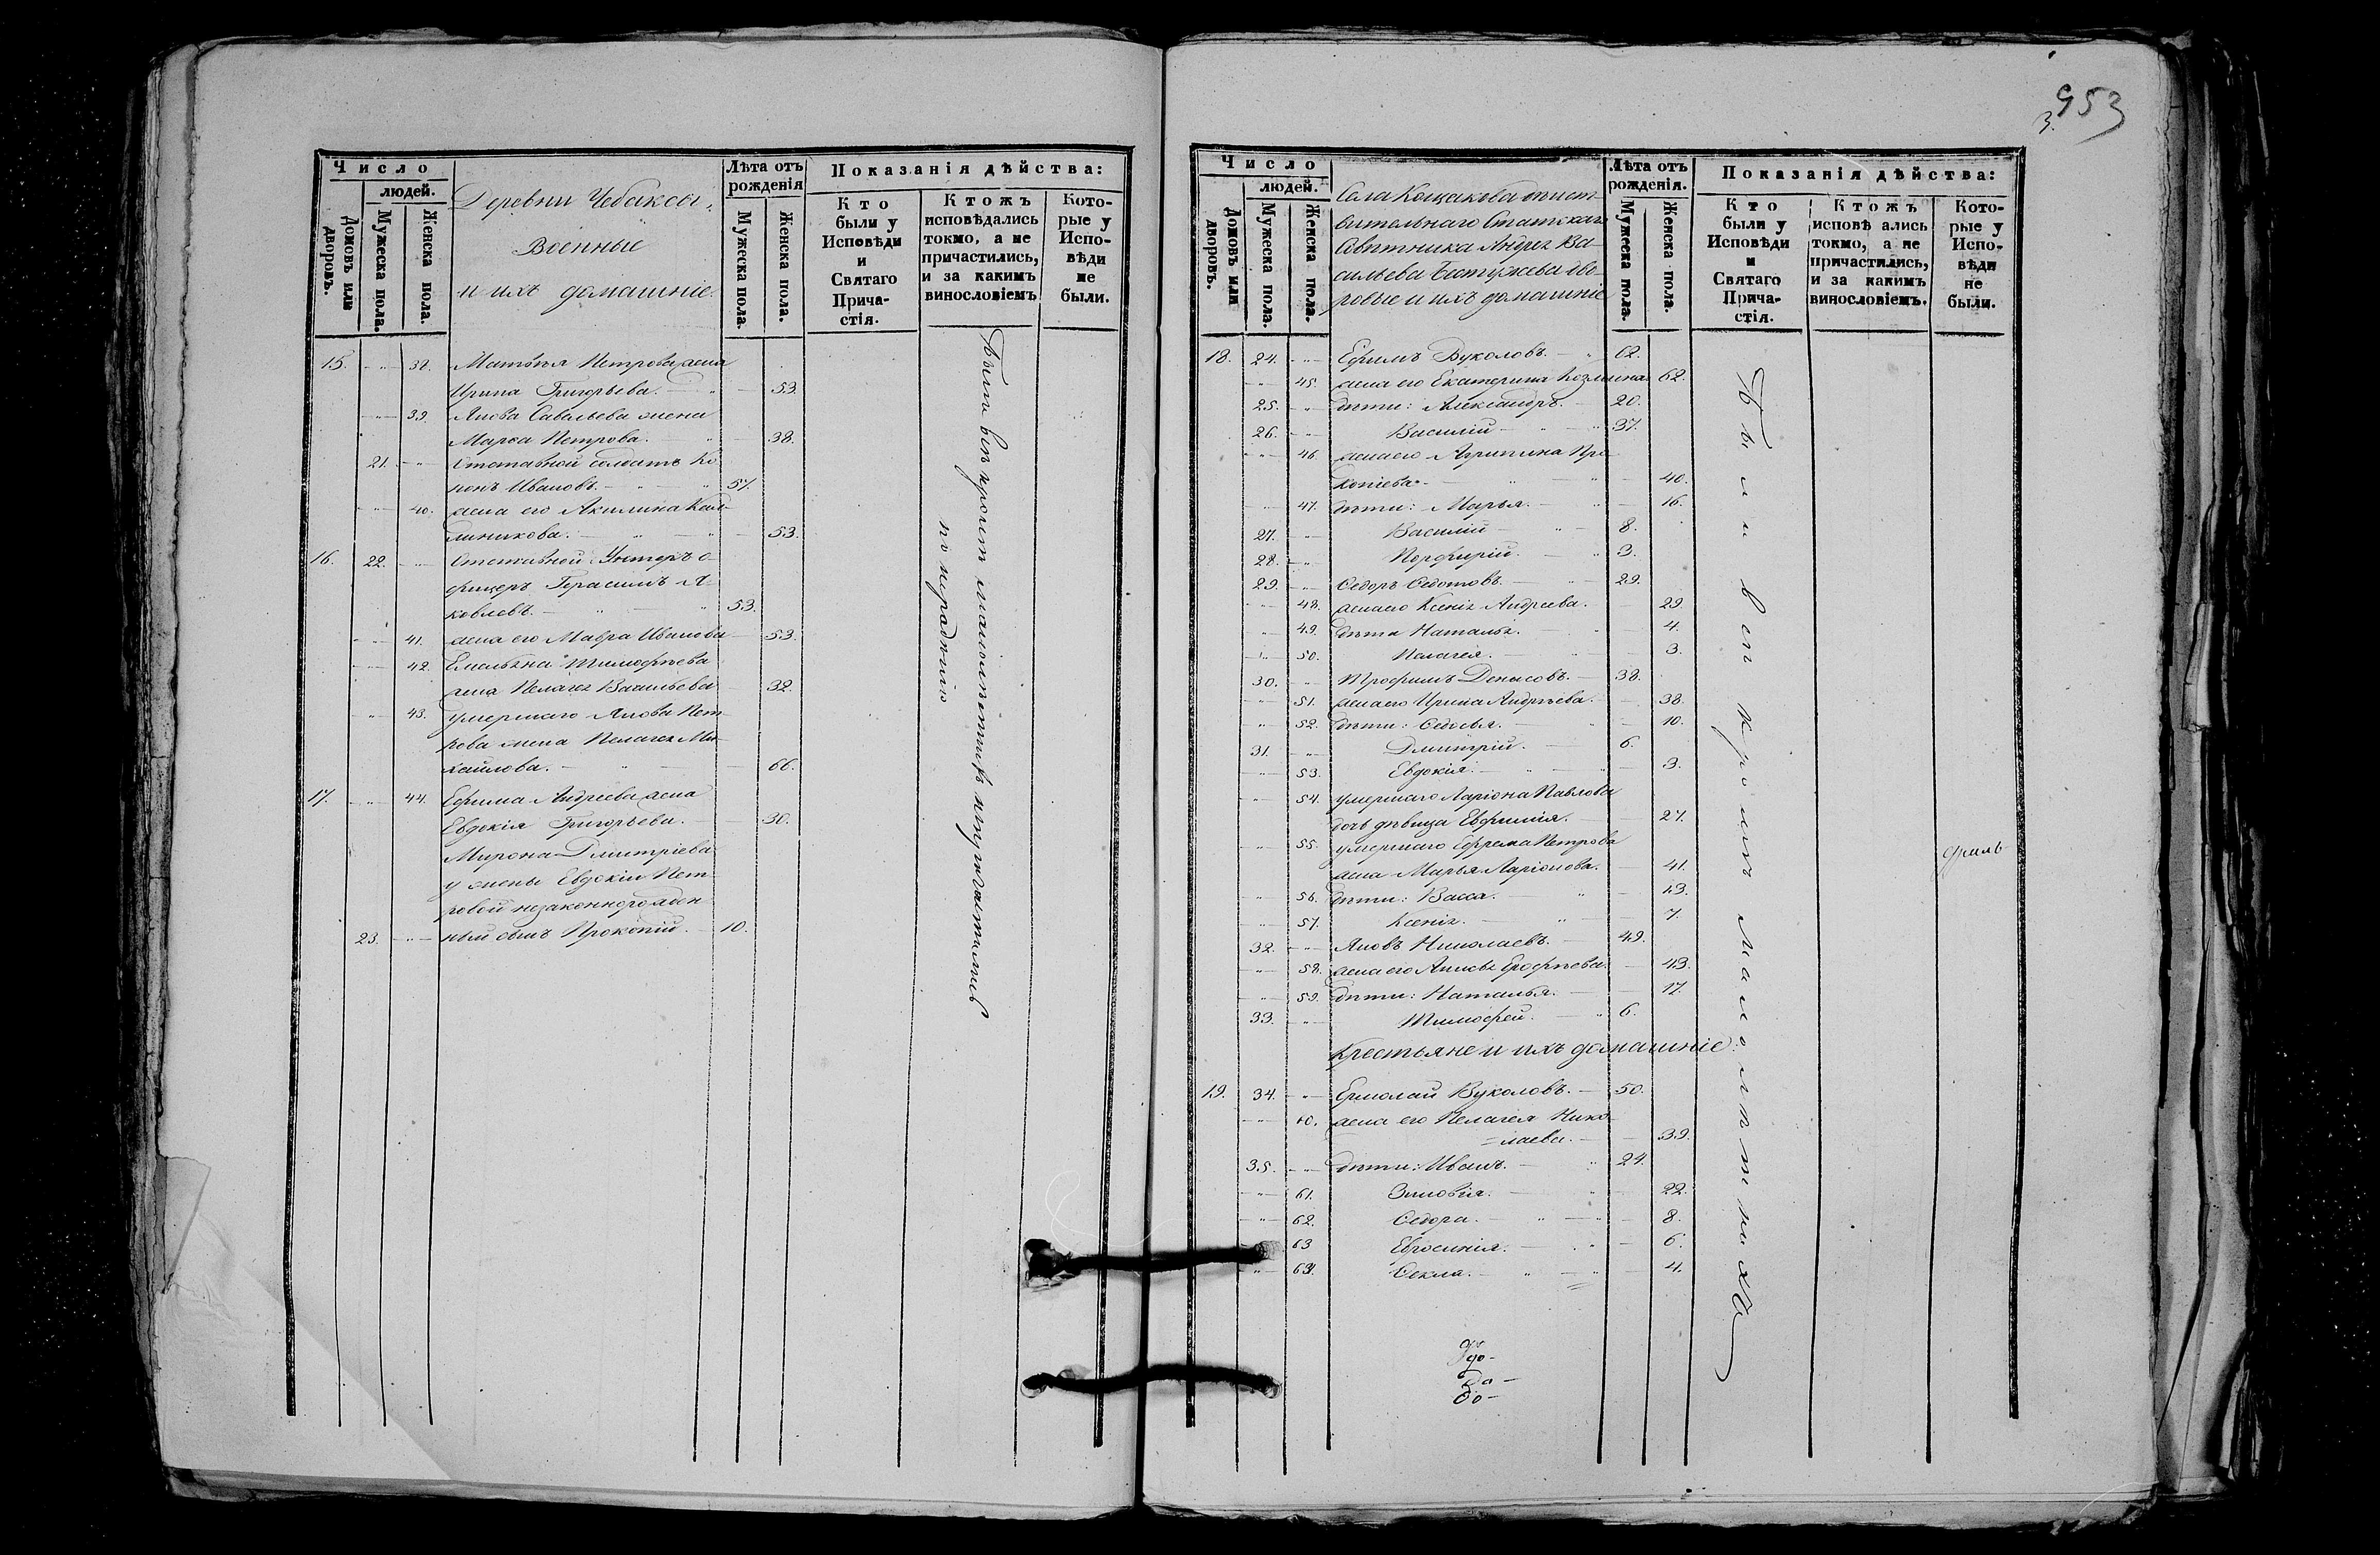 Число
людей.
Домовъ или дворовъ.
Мужеска пола.
Женска пола.
Деревни Чебаксы,
Военные
и ихъ домашніе.
Лѣта отъ
рожденія
Мужеска пола.
Женска пола.
Показанія дѣйства:
Кто
были у
Исповѣди
и
Святаго
Прича-
стія.
Ктожъ
исповѣдались
токмо, а не
причастились,
и за какимъ
винословіемъ
Кото-
рые у
Испо-
вѣди
не
были.
15. 38. Матвѣя Петрова жена
Ирина Григорьева. 53.
39. Якова Савельева жена
Марѳа Петрова. 38.
21. Отставной солдатъ Ко
нонъ Ивановъ. 57.
40. жена его Акилина
53.
16. 22. Отставной Унтеръ о-
фицеръ Герасимъ Я-
ковлевъ. 53.
41. жена его Мавра Иванова 53.
42. Емельяна Тимофѣева
жена Пелагея Васильева 32.
43. умершаго Якова Пет
рова жена Пелагея Ми-
хайлова. 66.
17. 44. Ефима Андреева жена
Евдокія Григорьева. 30.
Мирона Дмитріева
у жены Евдокіи Пет
ровой незаконнорожден-
23. ный сынъ Прокопій. 10.
Были всѣ кромѣ малолѣтнихъ непричастились
по нерадѣнію
953
3.
Число
людей.
Домовъ или дворовъ.
Мужеска пола.
Женска пола.
Села Кощакова дѣйст
вительнаго Статскаго
Совѣтника Андрея Ва-
сильева Бестужева дво-
ровые и ихъ домашніе
Лѣта отъ
рожденія.
Мужеска пола.
Женска пола.
Показанія дѣйства:
Кто
были у
Исповѣди
и
Святаго
Прича-
стія.
Ктожъ
исповѣ ались
токмо, а не
причастились,
и за какимъ
винословіемъ.
Кото-
рые у
Испо-
вѣди
не
были.
18. 24. Ефимъ Вуколовъ. 62.
45. жена его Екатерина Козмина 62.
25. дѣти: Александръ. 20.
26. Василій 37.
46. жена его Агрипина Про-
копіева. 40.
47. дѣти: Марья. 16.
27. Василій 8.
28. Порфирій. 3.
29. Ѳедоръ Ѳедотовъ. 29.
48. жена его Ксенія Андреева. 29.
49. дѣти Наталья. 4.
50. Пелагея. 3.
30. Трофимъ Денисовъ. 38.
51. жена его Ирина Андреева. 38.
52. дѣти: Ѳедосья. 10.
31. Дмитрій. 6.
53. Евдокія. 3.
54. умершаго Ларіона Павлова
дочь дѣвица Евфимія. 27.
55. умершаго Ефрема Петрова
жена Марья Ларіонова. 41.
56. дѣти: Васса. 13.
57. Ксенія. 7.
32. Яковъ Николаевъ. 49.
58. жена его Анисья Ерофѣева. 43.
59. дѣти: Наталья. 17.
33. Тимофей. 6.
Крестьяне и ихъ домашніе:
19. 34. Ермолай Вуколовъ. 50.
60. жена его Пелагея Нико
лаева. 39.
35. дѣти: Иванъ. 24.
61. Зиновія. 22.
62. Ѳедора. 8.
63 Евросинія. 6.
64. Ѳекла. 4.
Были всѣ кромѣ малолѣтнихъ